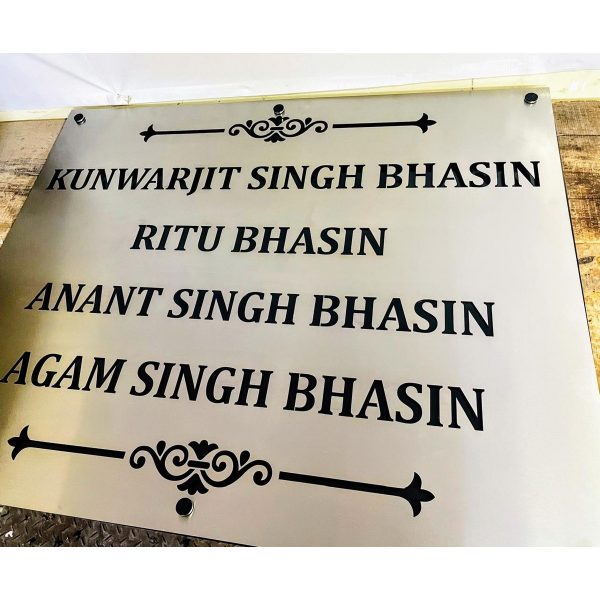 KUNWARJIT SINGH BHASIN
RITU BHASIN
ANANT SINGH BHASIN
AGAM SINGH BHASIN